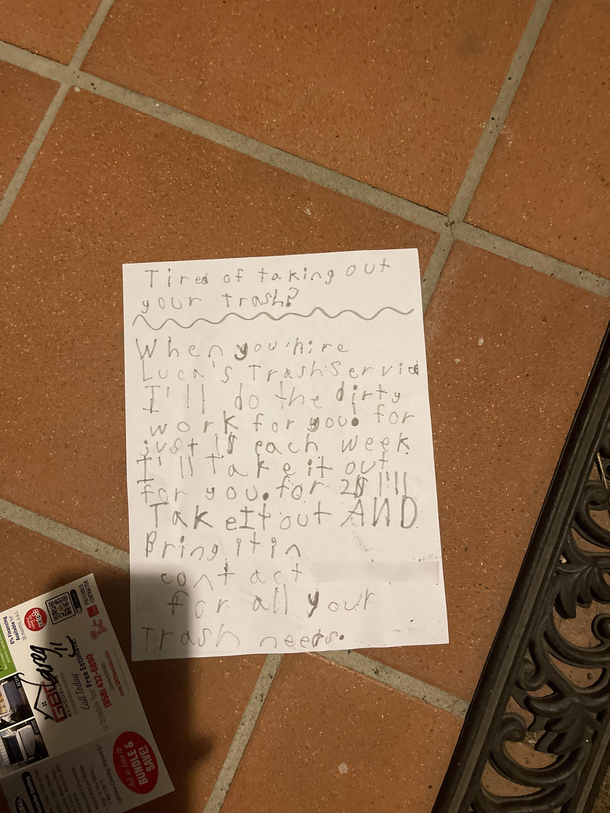 Tired of taking out
your trash?
When you hire
Luca's Trash Service
I'll do the dirty
work for you! for
just 1$ each week
I'll Take it out
for you. for 2$ I'll
Take It out AND
Bring it in
contact
for all your
Trash needs.
(858) 432-8890
Call Today
Free Estimate
BUNDLE &
SAVE!